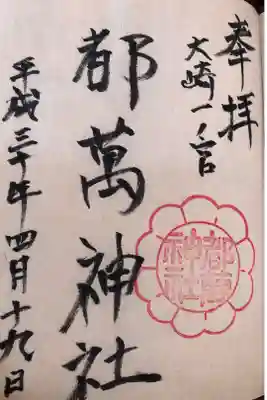 奉拝
大崎一ノ宮
都萬神社
都萬神社
平成三十年四月十九日